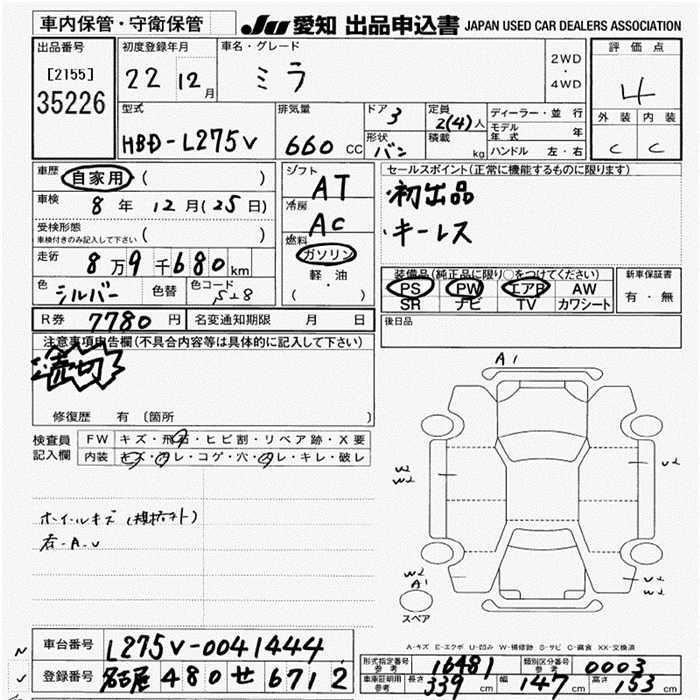 車内保管・守衛保管
JU 愛知 出品申込書 JAPAN USED CAR DEALERS ASSOCIATION
出品番号
[2155]
35226
初度登録年月
22 12月
車名・グレード
ミラ
2WD
・
4WD
評価点
4
外装 内装
C C
型式
HBD-L275V
排気量
660 CC
ドア 3
形状 バン
定員 2(4)人
積載 kg
ディーラー・並行
モデル年式 年
ハンドル 左・右
車歴 自家用 ( )
車検 8年 12月(25日)
受検形態
車検付きのみ記入して下さい ( )
走行 8万9千680km
色 シルバー 色替 色コード S28
シフト AT
冷房 AC
燃料
ガソリン
軽・油
( )
セールスポイント(正常に機能するものに限ります)
・初出品
・キーレス
装備品(純正品に限り○をつけてください)
PS PW エアB AW
SR ナビ TV カワシート
新車保証書
有・無
R券 7780円 名変通知期限 月 日
後日品
注意事項申告欄(不具合内容等は具体的に記入して下さい)
売切
修復歴 有 〔箇所 〕
検査員記入欄
FW キズ・飛石・ヒビ割・リペア跡・X要
内装 キズ・汚レ・コゲ・穴・スレ・キレ・破レ
ホイールキズ
右-A-U
A1
W2
W2
U2
W2
A1
U2
W2
スペア
A-キズ E-エクボ U-凹み W-補修跡 S-サビ C-腐食 XX-交換済
車台番号 L275V-0041444
登録番号 名古屋 480 せ 6712
型式指定番号 参考 16481 類別区分番号 参考 0003
車庫証明用 参考 長さ 339cm 幅 147cm 高さ 153cm